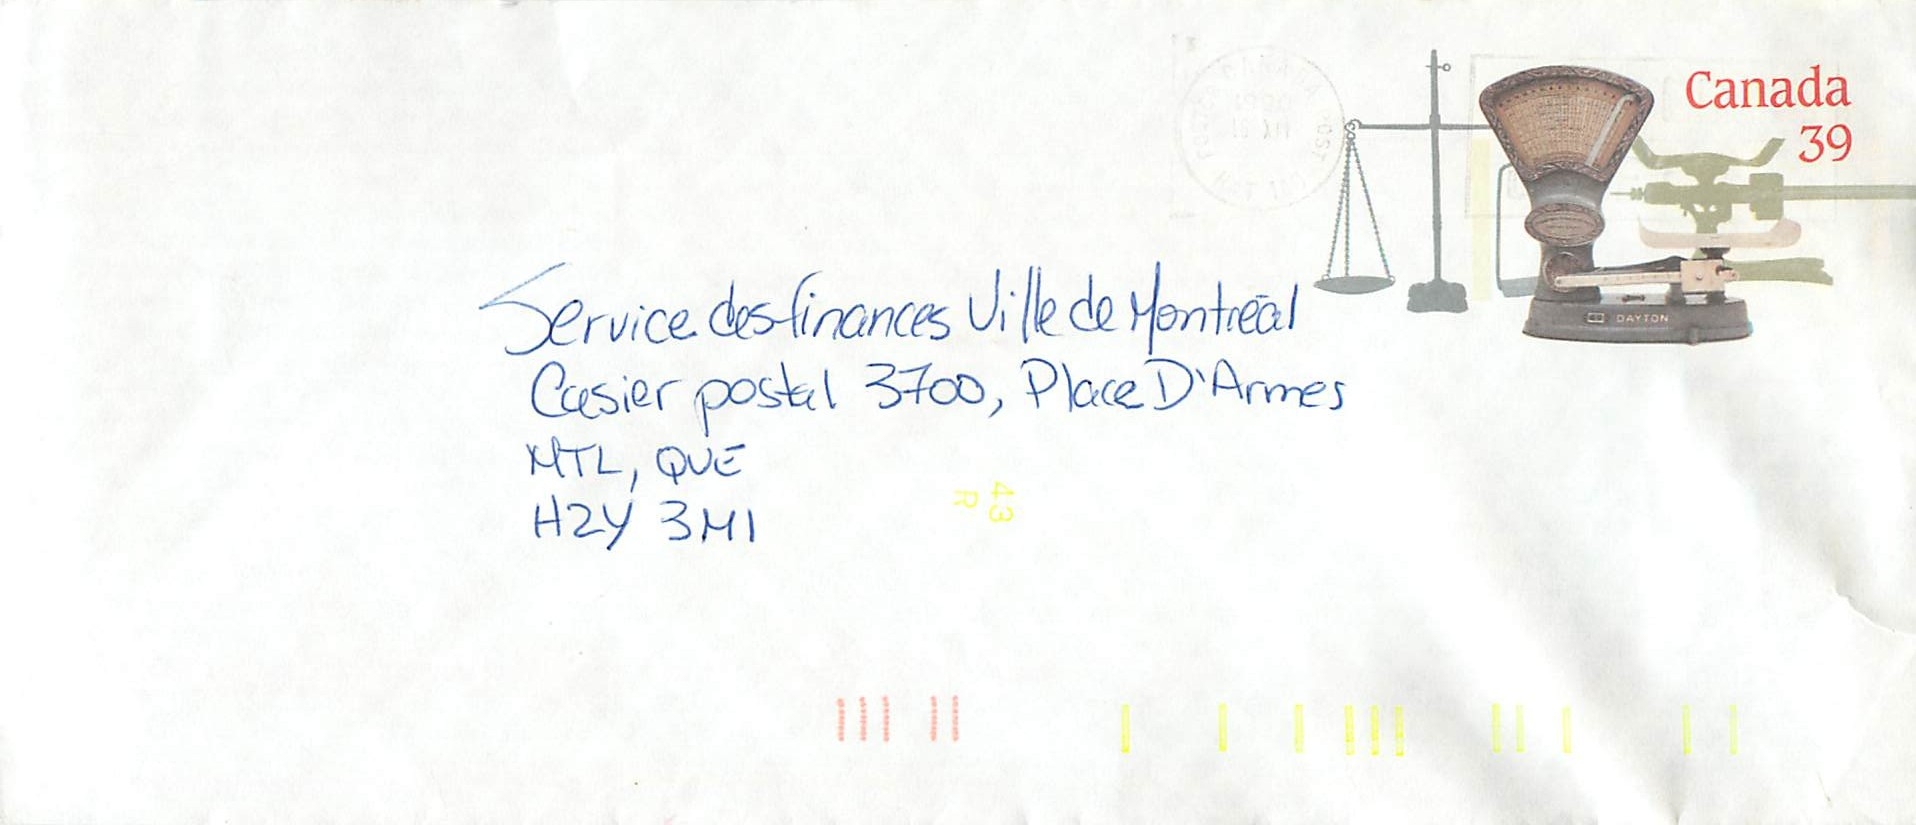 Canada
39
DAYTON
Service des finances Ville de Montréal
Casier postal 3700, Place D'Armes
MTL, QUE
H2Y 3M1
43
R